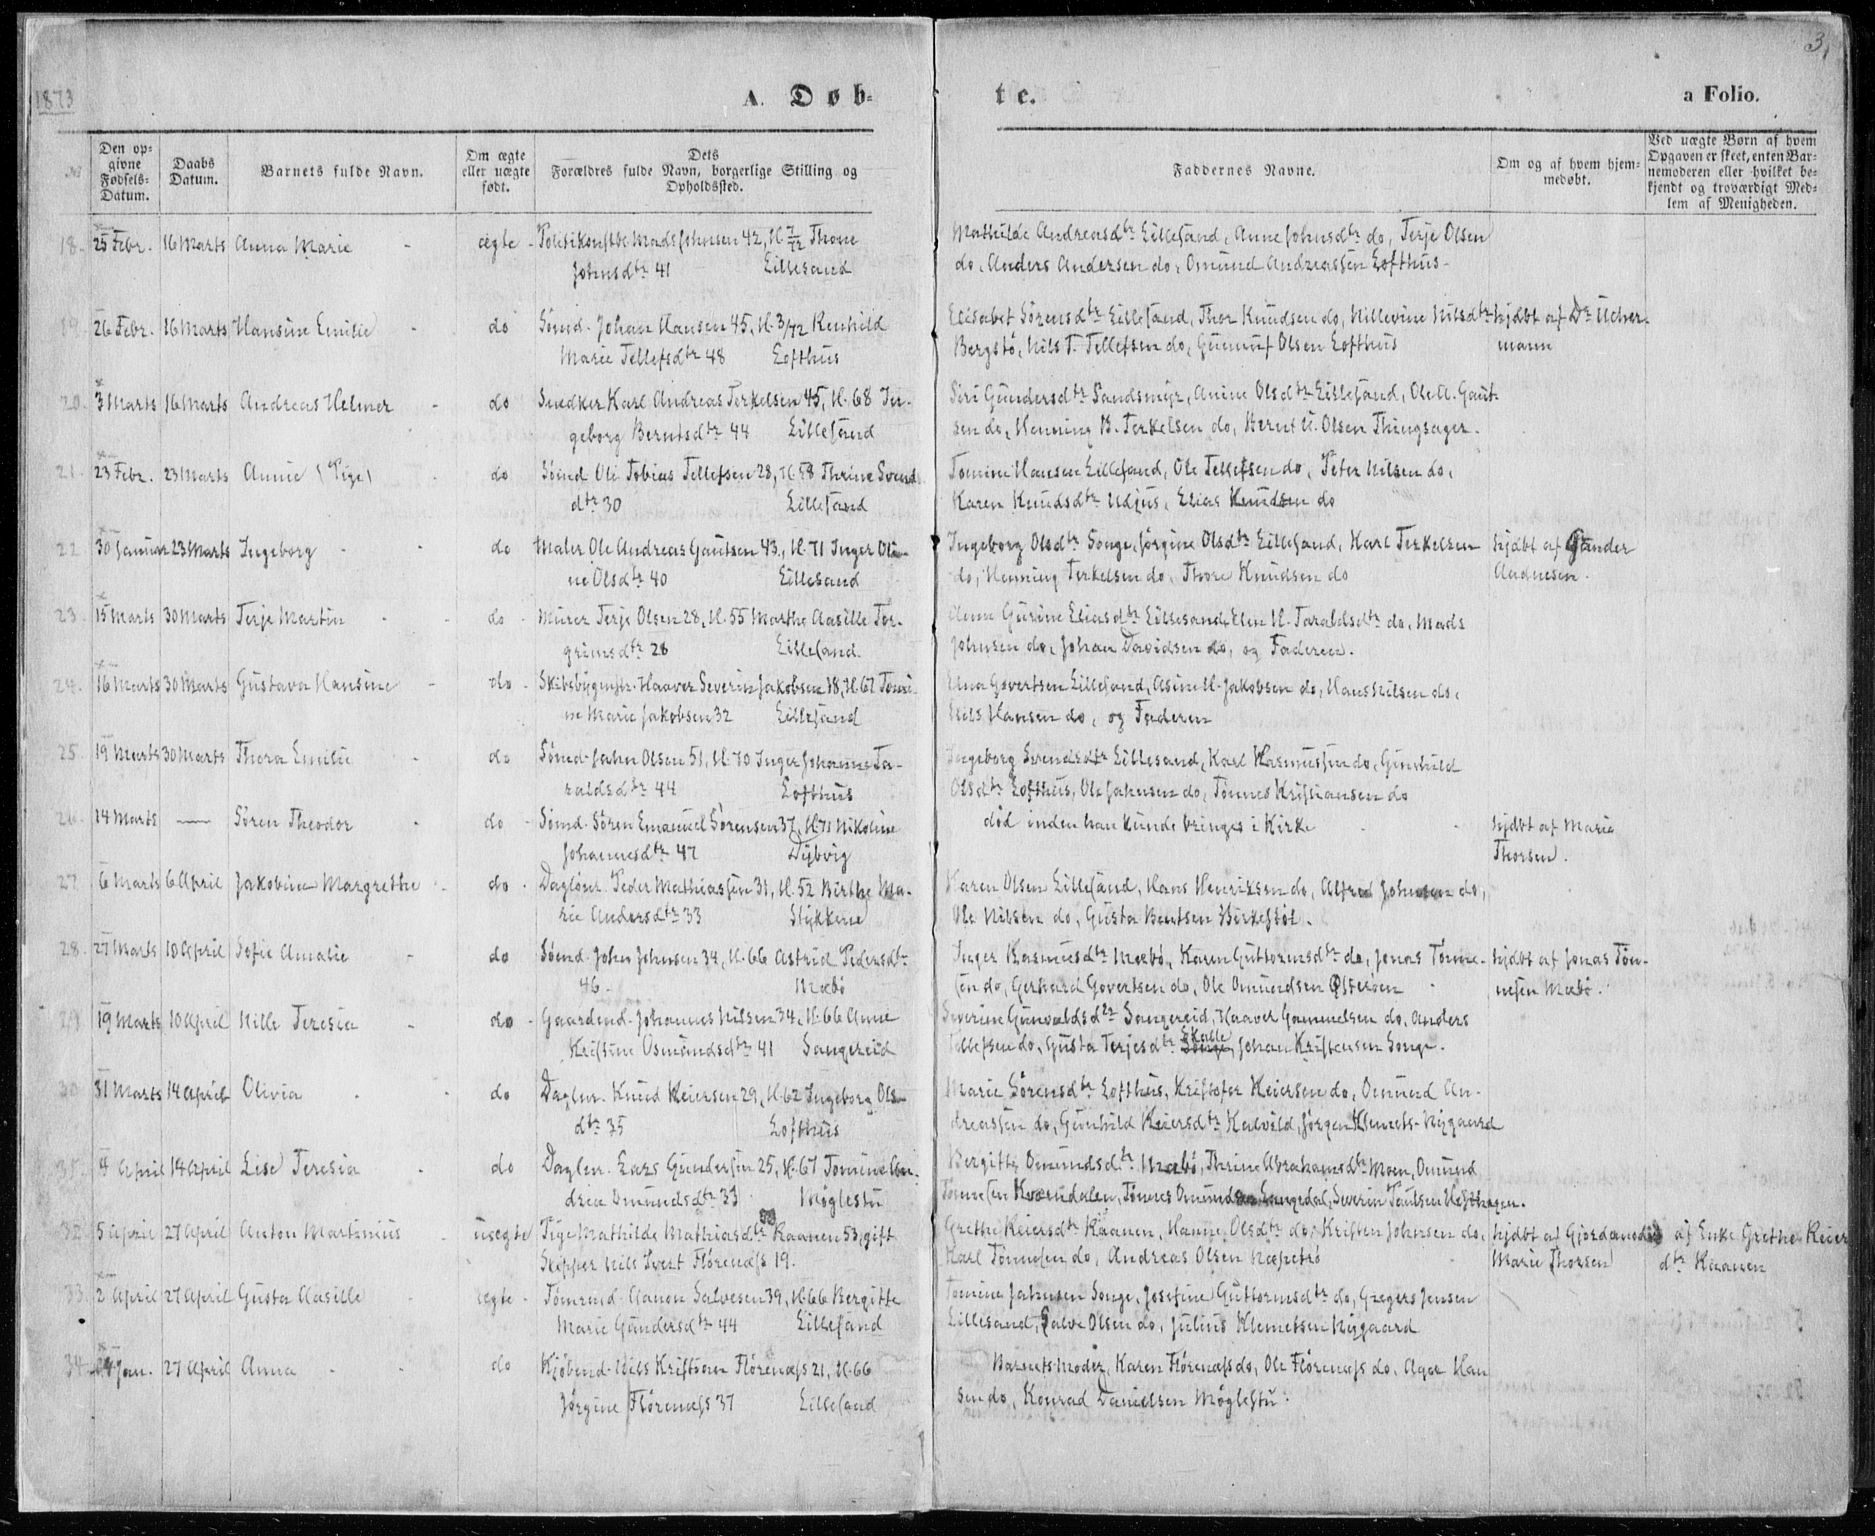 3,
1873
A. Døb-
te.
a Folio.
Den op-
givne
Fødsels-
Datum.
Daabs
Datum.
Barnets fulde Navn.
Om ægte
eller uægte
født.
Dets
Forældres fulde Navn, borgerlige Stilling og
Opholdssted.
Faddernes Navne.
Om og af hvem hjem-
medøbt.
Ved uægte Børn af hvem
Opgaven er skeet, enten Bar-
nemoderen eller hvilket be-
kjendt og troværdigt Med-
lem af Menigheden.
18. 25 Febr. 16 Marts Anna Marie - ægte - Politikonstbl. Mads Johnsen 42, Thone
Johnsdtr 41 Lillesand
Mathilde Andreasdtr Lillesand, Anne Johnsdtr do, Terje Olsen
do, Anders Andersen do, Omund Andreassen Lofthus -
19. 26 Febr. 16 Marts Hansine Emilie - do Sømd. Johan Hansen 45, Kenhild
Marie Tellefsdtr 48 Lofthus
Elisabet Sørensdtr Lillesand, Thor Knudsen do, Nilsdtr hjdbt af Dr Ucher-
Bergstø, Nils T. Tellefsen do, Olsen Lofthus mann
20. 3 Marts 16 Marts Andreas Helmer - do Snedker Karl Andreas Terkelsen 45, H. 68 In-
geborg Berntsdtr 44 Lillesand
Siri Gundersdtr Sandsmyr, Anine Olsdtr Lillesand, Ole A. Gaut-
sen do, Henning B. Terkelsen do, Olsen Thingsager.
21. 23 Febr. 23 Marts Annie (Pige) - do Sømd Ole Tobias Tellefsen 28, H. 58 Thrine Svends
dtr 30 Lillesand
Tomine Hansen Lillesand, Ole Tellefsen do, Peter Nilsen do,
Karen Knudsdtr Udjus, Elias Knudsen do
22. 30 Januar 23 Marts Ingeborg - do Maler Ole Andreas Gautsen 43, H. 71 Inger Oli-
ne Olsdtr 40 Lillesand
Ingeborg Olsdtr Songe, Jørgine Olsdtr Lillesand, Karl Terkelsen hjdbt af Gunder
do, Henning Terkelsen do, Thore Knudsen do
23. 15 Marts 30 Marts Terje Martin - do - Murer Terje Olsen 28, H. 55 Marthe Aasille Tor-
grimsdtr 28 Lillesand.
Anne Gurine Eliasdtr Lillesand, Elen H. Taraldsdtr do, Mads
Johnsen do, Johan Davidsen do, og Faderen.
24. 16 Marts 30 Marts Gustava Hansine - do - Haaver Severin Jakobsen 18, H. 67 Tomi-
ne Marie Jakobsen 32 Lillesand
Govertsen Lillesand, H. Jakobsen do, Hans Nilsen do,
Nils Hansen do, og Faderen
25. 19 Marts 30 Marts Thora Emilie - do Sømd. Jahn Olsen 51, H. 70 Inger Johanne Ta-
raldsdtr 44 Lofthus
Ingeborg Svendsdtr Lillesand, Karl Rasmussen do, Gunhild
Olsdtr Lofthus, Ole Jahnsen do, Tønnes Kristiansen do
26. 14 Marts — Søren Theodor do - Sømd. Søren Emanuel Sørensen 37, H. 71 Nikoline
Johannesdtr 47 Dybvig
død inden han kunde bringes i Kirke - hjdbt af Maria
Thorsen.
27. 6 Marts 6 April Jakobine Margrethe - do - Daglønr. Peder Mathiassen 31, H. 52 Birthe Ma-
rie Andersdtr 33 Stykkene
Karen Olsen Lillesand, Hans Henriksen do, Alfred Johnsen do,
Ole Nilsen do, Gusta Berntsen Birkestøl.
28. 27 Marts 10 April Sofie Amalie - do Sømd. John Johnsen 34, H. 66 Astrid Pedersdtr
46 - Mæbø
Inger Rasmusdtr Mæbø, Karen Guttormsdtr do, Jonas Tønne- hjdbt af Jonas Tøn-
sen do, Gerhard Govertsen do, Ole Omundsen nesen Mæbø.
29. 19 Marts 10 April Nille Teresia - do - Gaardmd. Johannes Nilsen 34, H. 66 Anne
Kristine Osmundsdtr 41 Sangereid
Severine Gunvaldsdtr Sangereid, Haaver Gammelsen do, Anders
Tellefsen do, Gusta Terjesdtr Skalle Songe, Johan Kristensen Songe.
30. 31 Marts 14 April Olivia - do Daglnr. Knud Reiersen 29, H. 62 Ingeborg Ols-
dtr 35 Lofthus
Marie Sørensdtr Lofthus, Kristofer Reiersen do, Omund An-
dreassen do, Gunhild Reiersdtr Kalvild, Jørgen Klemets- Nygaard
31. 4 April 14 April Lise Teresia - do Daglnr. Lars Gundersen 25, H. 67 Tomine An-
drea Omundsdtr 33 Møglestu
Bergitte Omundsdtr Mæbø, Thrine Abrahamsdtr Moen, Omund
Tønnesen Kvænndalen, Tønnes Omundsen Langedal, Severin
32. 5 April 27 April Anton Martinius - uægte Pige Mathilde Mathiasdtr Kaanen 53, gift
Skipper Nils Florenæss 19.
Grethe Reiersdtr Kaanen, Hanne Olsdtr do, Kristen Johnsen do, hjdbt af Gjordemoder af Enke Grethe Reier
Karl Tønnesen do, Andreas Olsen Marie Thorsen dtr Kaanen
33. 2 April 27 April Gusta Aasille - ægte - Tømrmd. Aanon Salvesen 39, H. 66 Bergitte
Marie Gundersdtr 44 Lillesand
Tomine Jahnsen Songe, Josefine Guttormsdtr do, Gregers Jensen
Lillesand, Salve Olsen do, Julius Klemetsen Nygaard
34. 24 Jan. 27 April Anna - do Kjøbmd. Nils Kristian Florenæss 21, H. 66
Jørgine Florenæss 37 Lillesand
Barnets moder, Karen Florenæss do, Ole Florenæss do, Han
sen do, Konrad Danielsen Møglestu.